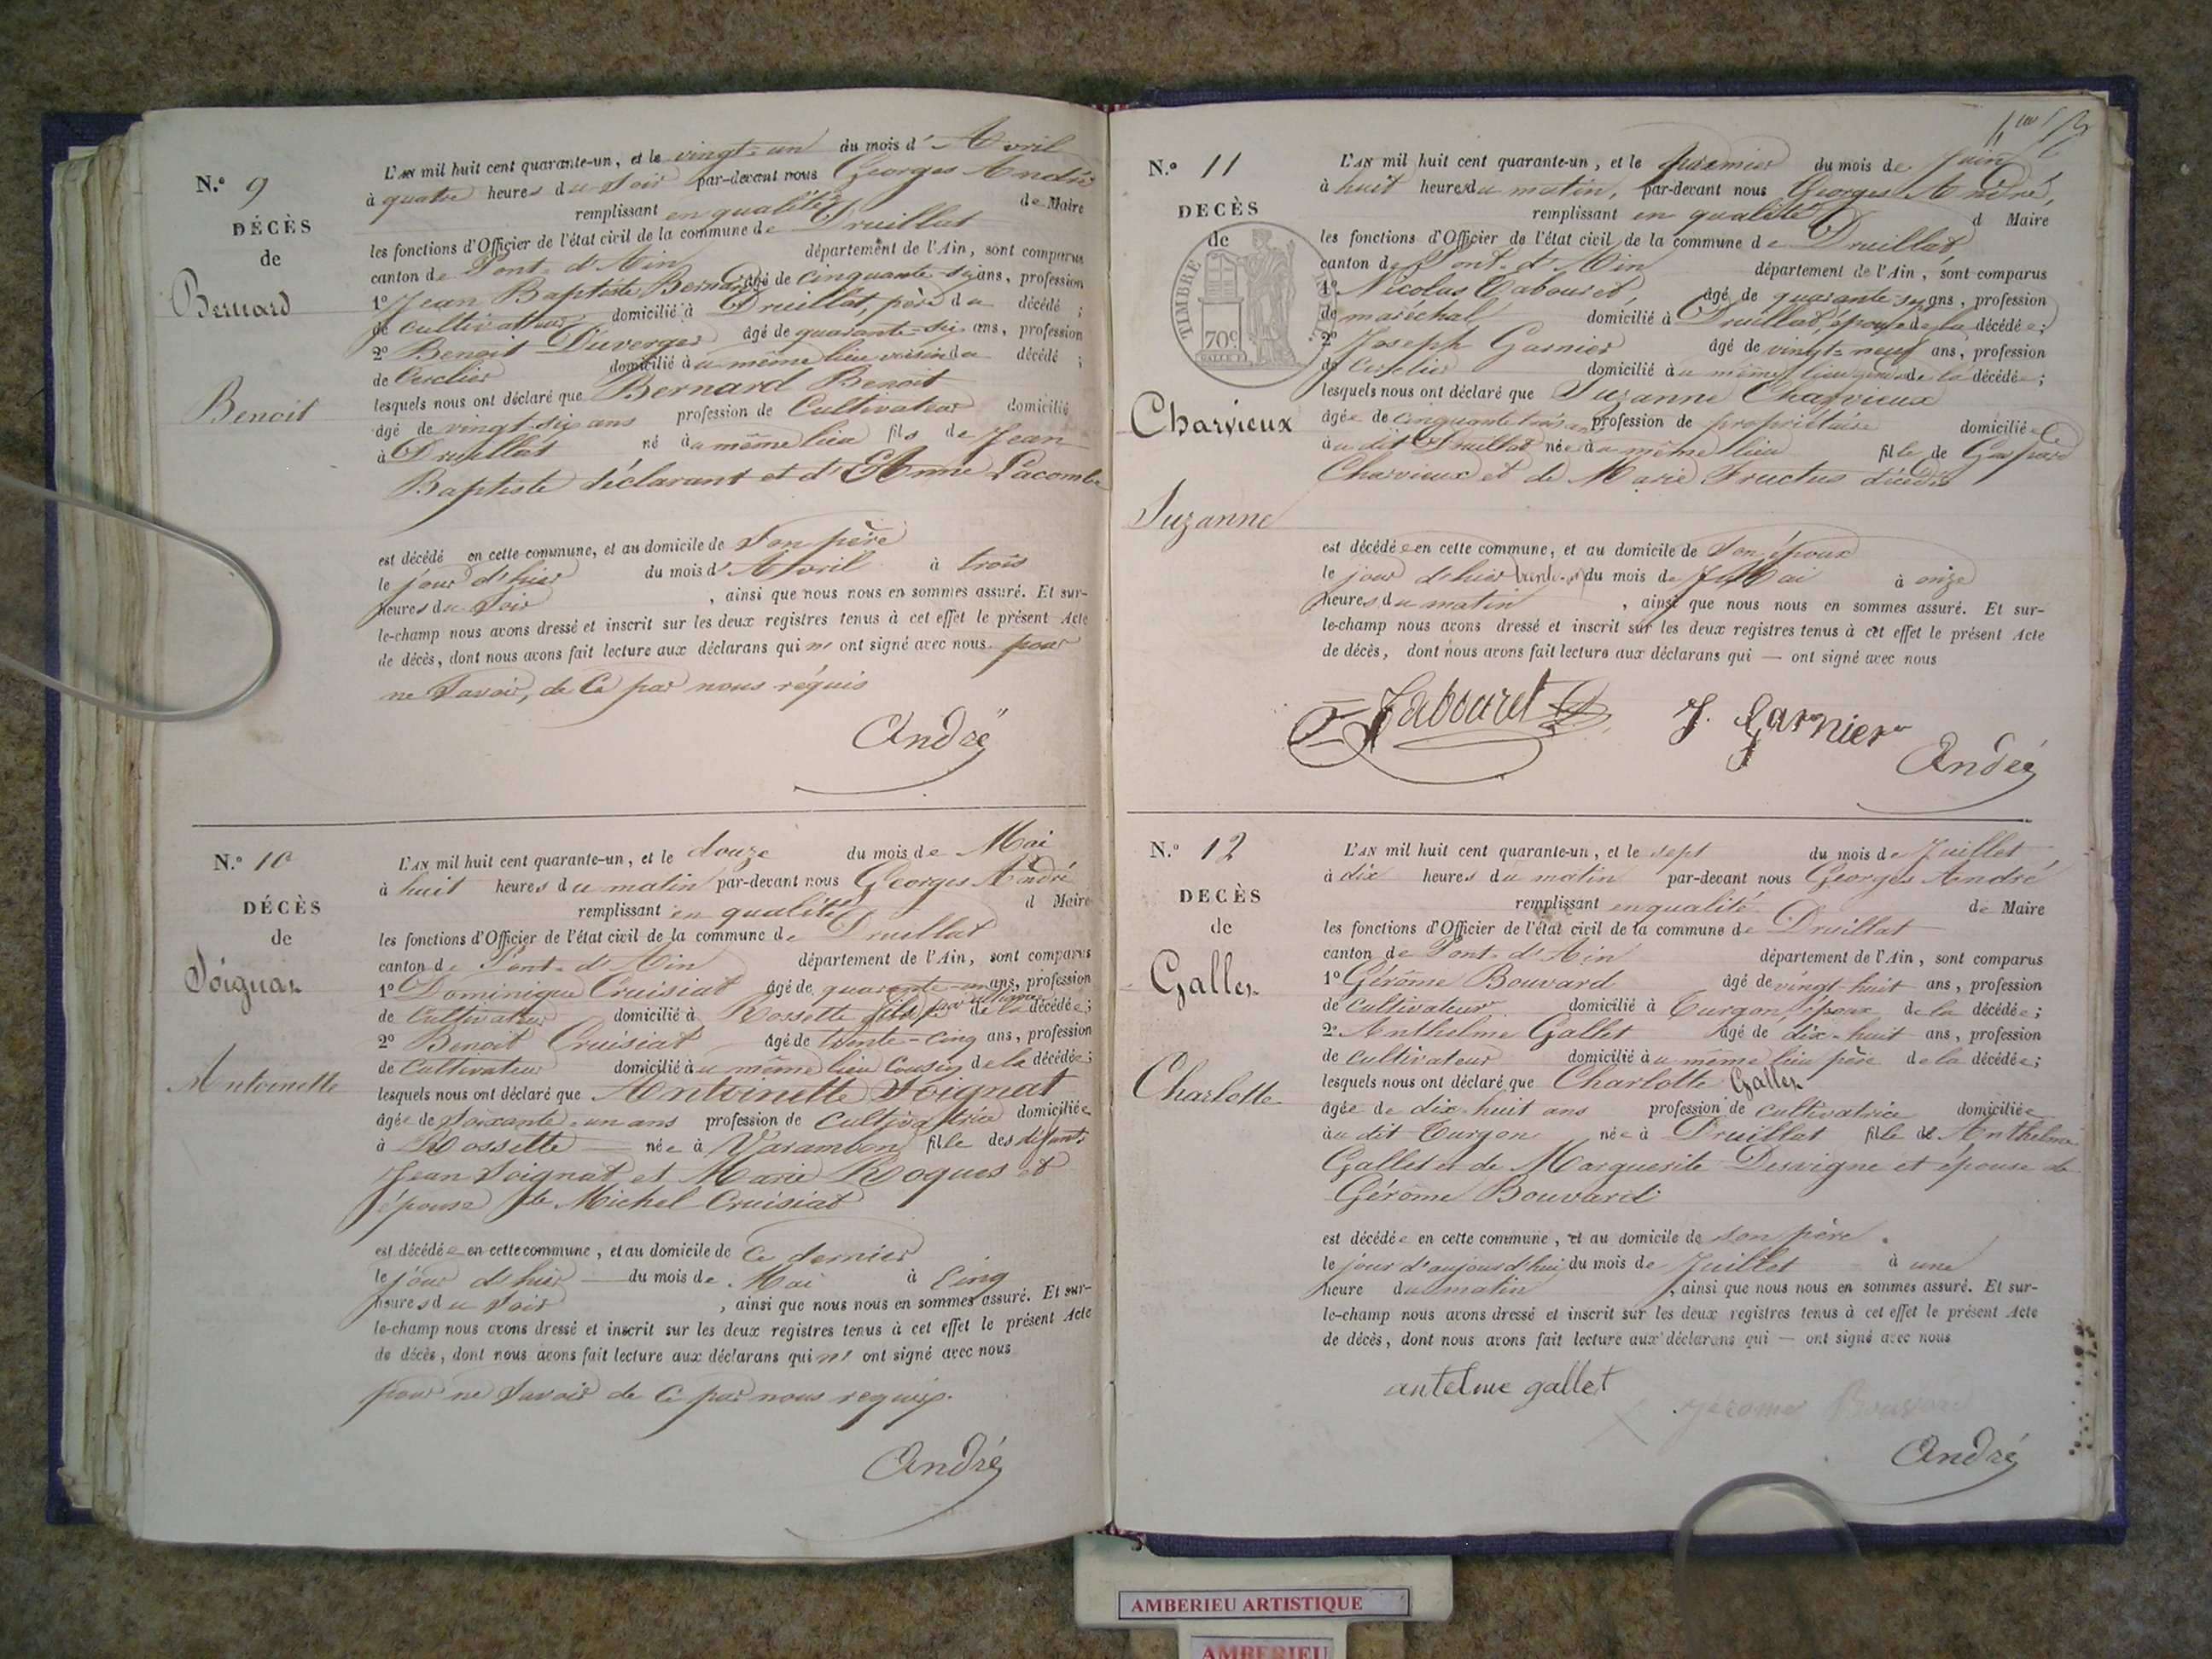 N.° 9
DÉCÈS
de
Bernard
Benoit
L'AN mil huit cent quarante-un, et le vingt-un du mois d'Avril
à quatre heures du soir par-devant nous Georges André
remplissant en qualité de Maire
les fonctions d'Officier de l'état civil de la commune de Druillat
canton de Pont-d'Ain département de l'Ain, sont comparus
1° Jean Baptiste Bernard âgé de cinquante-six ans, profession
de cultivateur domicilié à Druillat, père du décédé ;
2° Benoit Duverger âgé de quarante-six ans, profession
de Cerclier domicilié au même lieu voisin du décédé ;
lesquels nous ont déclaré que Bernard Benoit
âgé de vingt-six ans profession de Cultivateur domicilié
à Druillat né au même lieu fils de Jean
Baptiste déclarant et d'Anne Lacombe
est décédé en cette commune, et au domicile de son père
le jour d'hier du mois d'Avril à trois
heures du soir , ainsi que nous nous en sommes assuré. Et sur-
le-champ nous avons dressé et inscrit sur les deux registres tenus à cet effet le présent Acte
de décès, dont nous avons fait lecture aux déclarans qui n' ont signé avec nous pour
ne savoir, de ce par nous réquis
André
N.° 10
DÉCÈS
de
Soignat
Antoinette
L'AN mil huit cent quarante-un, et le douze du mois de Mai
à huit heures du matin par-devant nous Georges André
remplissant en qualité d Maire
les fonctions d'Officier de l'état civil de la commune de Druillat
canton de Pont-d'Ain département de l'Ain, sont comparus
1° Dominique Cruisiat âgé de quarante-un ans, profession
de Cultivateur domicilié à Rossette fils par de la décédée ;
2° Benoit Cruisiat âgé de trente-cinq ans, profession
de Cultivateur domicilié au même lieu Cousin de la décédée ;
lesquels nous ont déclaré que Antoinette Soignat
âgée de soixante-un ans profession de cultivatrice domiciliée
à Rossette née à Varambon fille des défunts
Jean Soignat et Marie Roques et
épouse de Michel Cruisiat
est décédée en cette commune, et au domicile de ce dernier
le jour d'hier du mois de Mai à Cinq
heures du soir , ainsi que nous nous en sommes assuré. Et sur-
le-champ nous avons dressé et inscrit sur les deux registres tenus à cet effet le présent Acte
de décès, dont nous avons fait lecture aux déclarans qui n' ont signé avec nous
pour ne savoir de ce par nous requis.
André
N.° 11
DECÈS
de
TIMBRE
70c
Charvieux
Suzanne
L'AN mil huit cent quarante-un, et le premier du mois de Juin
à huit heures du matin, par-devant nous Georges André,
remplissant en qualité d Maire
les fonctions d'Officier de l'état civil de la commune de Druillat
canton de Pont-d'Ain département de l'Ain, sont comparus
1° Nicolas Tabouret, âgé de quarante-six ans, profession
de maréchal domicilié à Druillat, époux de la décédée ;
2° Joseph Garnier âgé de vingt-neuf ans, profession
de Cerclier domicilié au même lieu de la décédée ;
lesquels nous ont déclaré que Suzanne Charvieux
âgée de cinquante trois ans profession de propriétaire domiciliée
au dit Druillat née au même lieu fille de Gaspard
Charvieux et de Marie Fructus décédés
est décédée en cette commune, et au domicile de son époux
le jour d'hier du mois de Mai à onze
heures du matin , ainsi que nous nous en sommes assuré. Et sur-
le-champ nous avons dressé et inscrit sur les deux registres tenus à cet effet le présent Acte
de décès, dont nous avons fait lecture aux déclarans qui — ont signé avec nous
Tabouret J. Garnier
André
N.° 12
DECÈS
de
Gallet
Charlotte
L'AN mil huit cent quarante-un, et le sept du mois de Juillet
à dix heures du matin par-devant nous Georges André
remplissant en qualité de Maire
les fonctions d'Officier de l'état civil de la commune de Druillat
canton de Pont-d'Ain département de l'Ain, sont comparus
1° Gérôme Bouvard âgé de vingt-huit ans, profession
de cultivateur domicilié à Turgon époux de la décédée ;
2° Anthelme Gallet âgé de dix-huit ans, profession
de cultivateur domicilié au même lieu père de la décédée ;
lesquels nous ont déclaré que Charlotte Gallet
âgée de dix-huit ans profession de cultivatrice domiciliée
au dit Turgon née à Druillat fille de Anthelme
Gallet et de Marguerite Desvigne et épouse de
Gérôme Bouvard
est décédée en cette commune, et au domicile de son père.
le jour d'aujourd'hui du mois de Juillet à une
heure du matin , ainsi que nous nous en sommes assuré. Et sur-
le-champ nous avons dressé et inscrit sur les deux registres tenus à cet effet le présent Acte
de décès, dont nous avons fait lecture aux déclarans qui — ont signé avec nous
antelme gallet
jerome Bouvard
André
AMBERIEU ARTISTIQUE
AMBERIEU